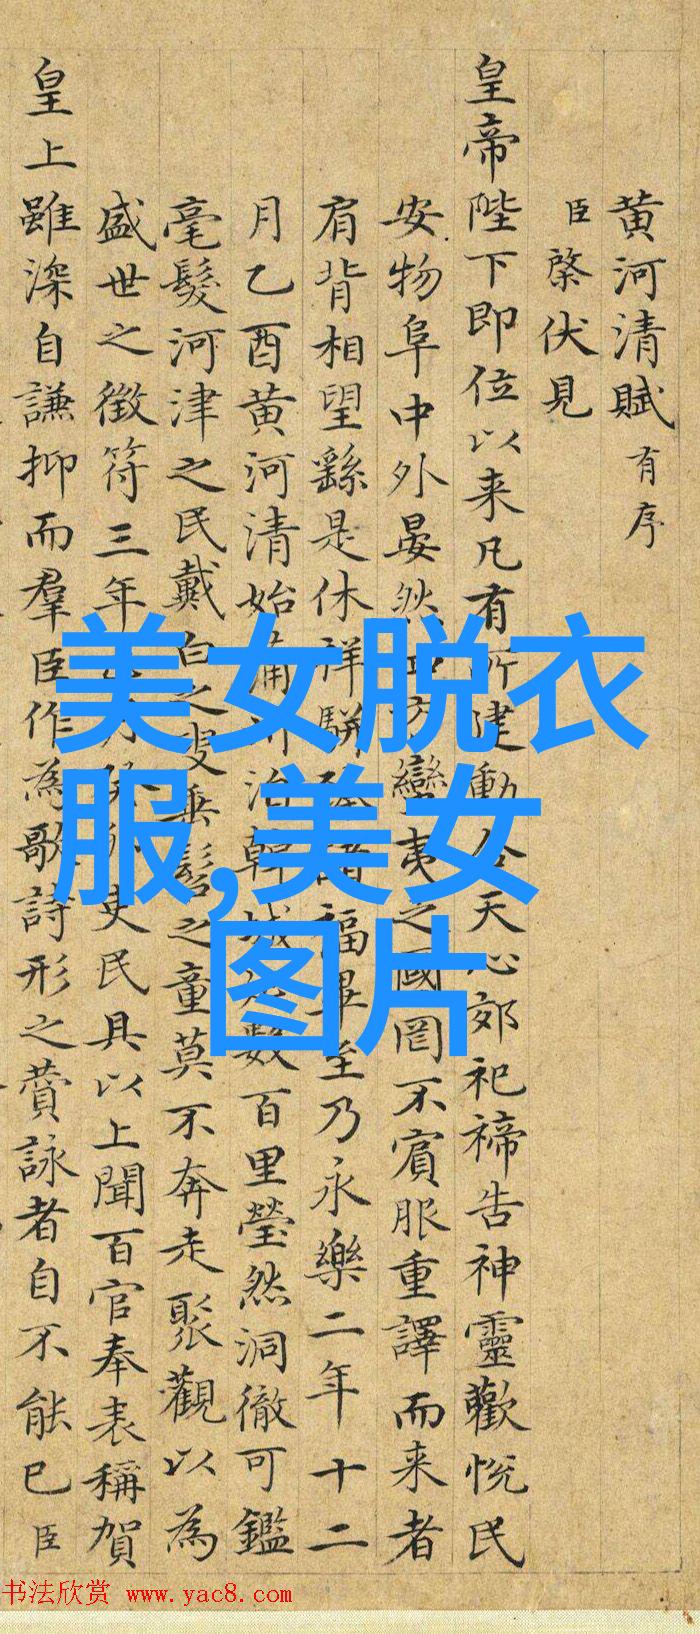 黄河清賦有序
臣棨伏見
皇帝陛下即位以来凡有所建動合天心郊祀禘告神靈歡悅民
安物阜中外晏然四方蠻夷之國罔不賓服重譯而来者
肩背相望繇是休祥駢臻諸福畢至乃永樂二年十二
月乙酉黄河清始蒲州洽韓城 數百里瑩然洞徹可鑑
毫髮河津之民戴白之叟垂髫之童莫不奔走聚觀以為
盛世之徵符三年 吏民具以上聞百官奉表稱賀
皇上雖深自謙抑而羣臣作為歌詩形之賛詠者自不能已臣
美女脱衣
服,美女
图片
书法欣赏 www.yac8.com